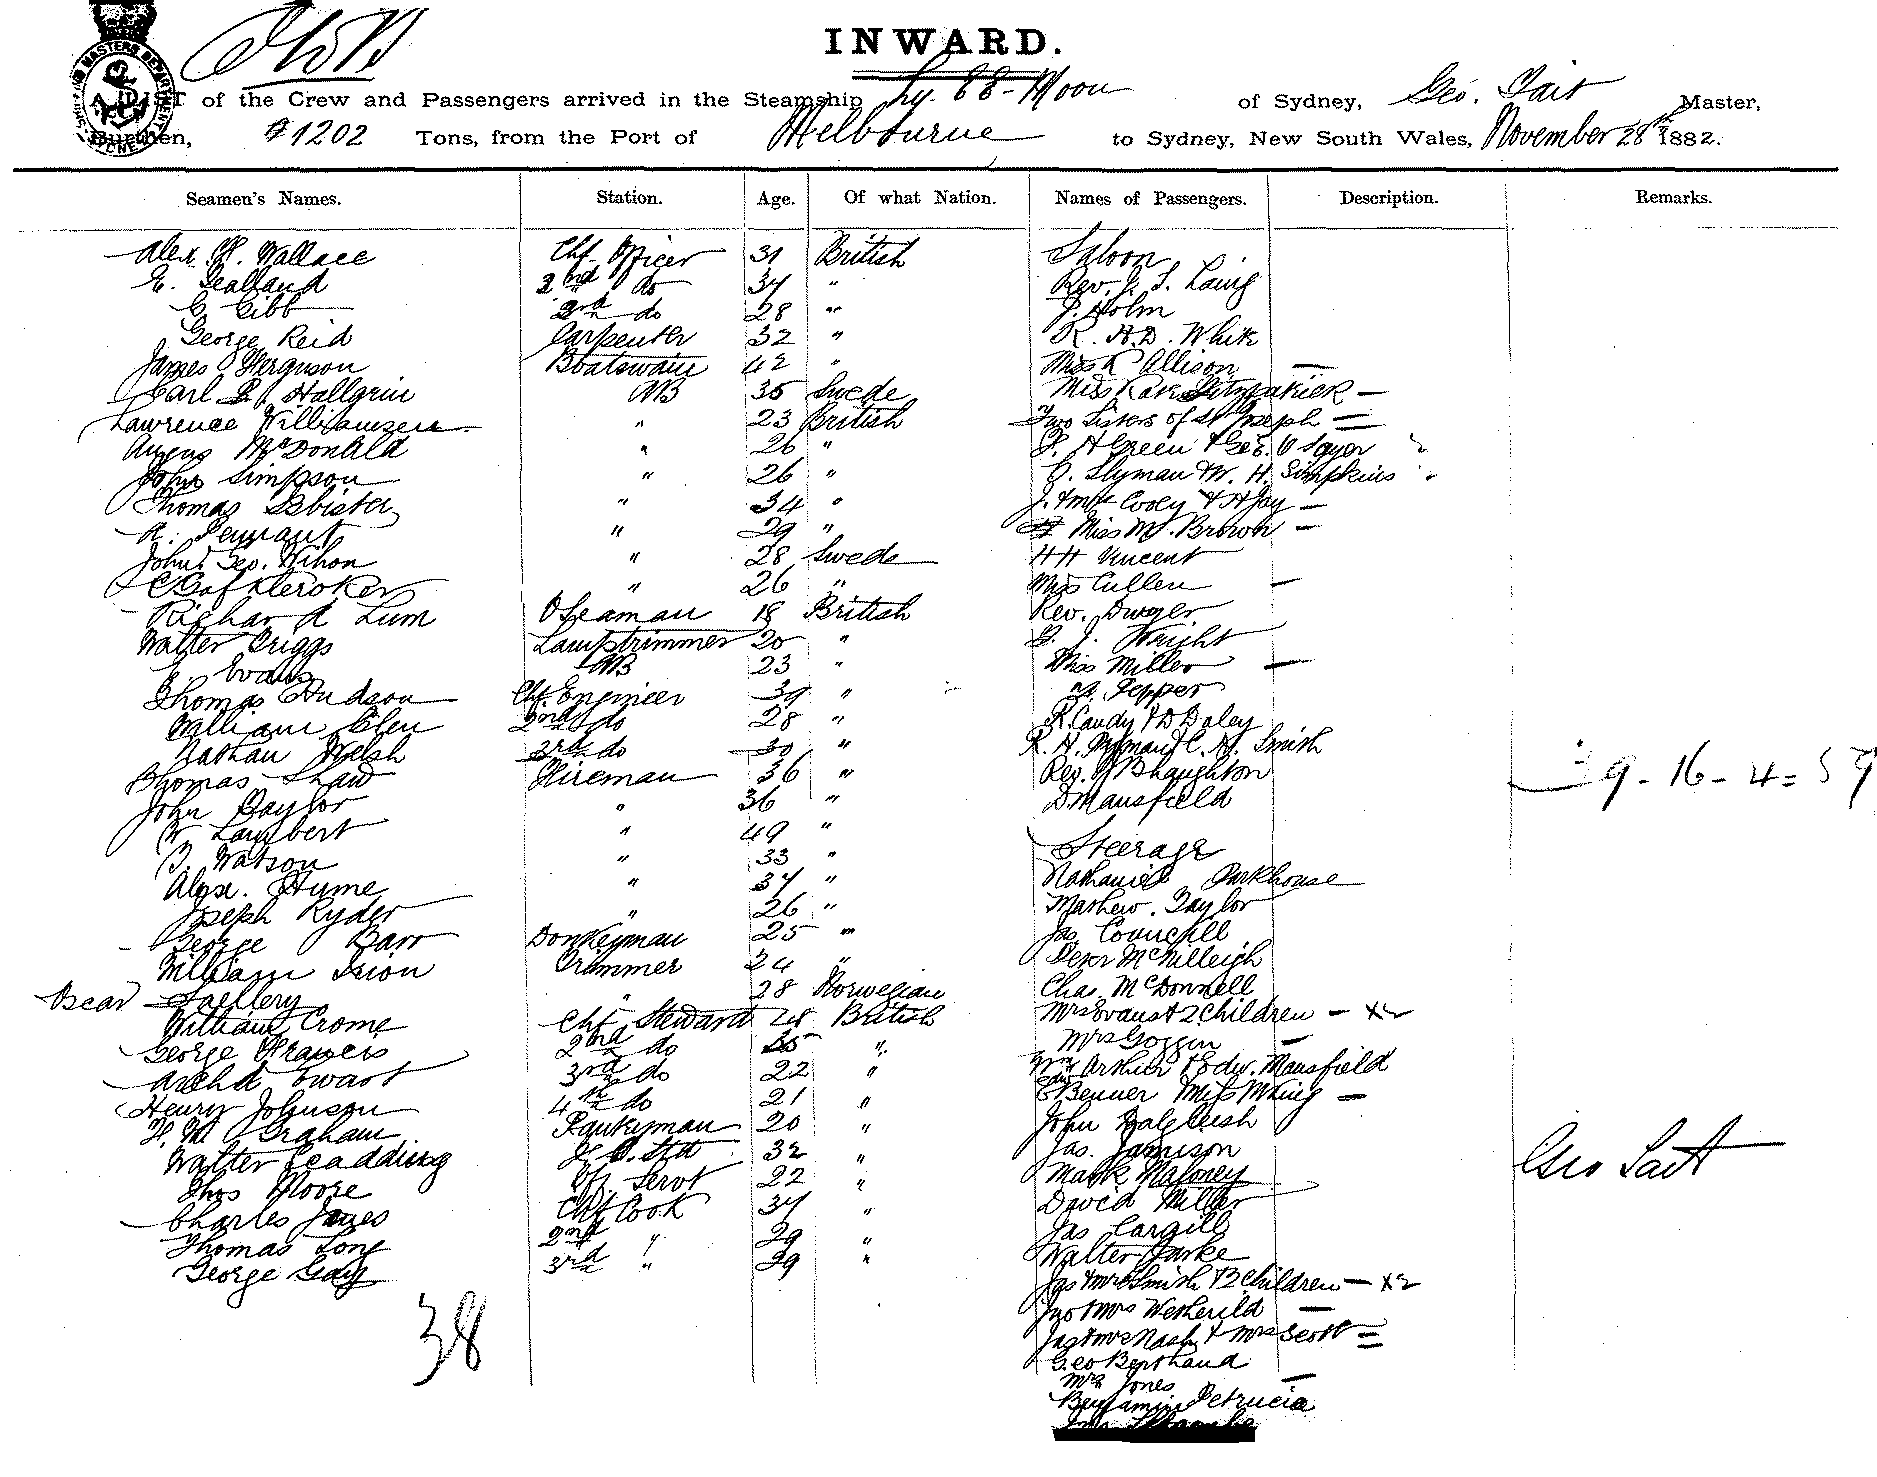 INWARD.
A LIST of the Crew and Passengers arrived in the Steamship Ly. ee-Moon of Sydney, Geo. Tait Master,
Burthen, 1202 Tons, from the Port of Melbourne to Sydney, New South Wales, November 28th 1882.
Seamen's Names. Station. Age. Of what Nation. Names of Passengers. Description. Remarks.
Alex. Wallace Chf. Officer 31 British Saloon
E. Gealland 2nd do 34 " Rev. J. S. Laing
C. Gibb do 28 " J. Holm
George Reid Carpenter 32 " R. H.D. White
James Ferguson Boatswain 42 " Miss Allison —
Carl Hallgrin AB 35 Swede Miss Kate Fitzpatrick —
Lawrence Williamzen " 23 British Two Sisters of St Joseph =
Angus McDonald " 26 " Green & Geo. O Sayer
John Simpson " 26 " Slyman & W. H. Simpkins
Thomas Isbister " 34 " J. & Mrs Cooey & H Jay —
A. Pennant " 29 " Miss M. Brown —
John Geo. Wilson " 28 Swede HH Vincent
" 26 " Miss Cullen —
Richard Lum O Seaman 18 British Rev. Dwyer
Walter Griggs Lamptrimmer 20 " Wright
E. Evans AB 23 " Miss Miller —
Thomas Hudson Chf Engineer 39 " Pepper
William Glen 2nd do 28 " R. Candy & D Daley
Nathan Welsh 3rd do 30 " R. H. C. H. Smith
Thomas Shaw Fireman 36 " Rev. O'Shaughton
John Taylor " 36 " D Mansfield
W. Lambert " 49 "
J. Watson " 33 " Steerage
Alex. Hume " 34 " Nathaniel Parkhouse
Joseph Ryder " 26 " Mathew. Taylor
George Barr Donkeyman 25 " Jas Councill
William Irion Trimmer 24 " Peter McNilleigh
Oscar " 28 Norwegian Chas. McDonnell
William Crome Chf Steward 28 British Mrs Evans & 2 Children — x2
George 2nd do 35 " Mrs Goggin —
Archd Ewart 3rd do 22 " Arthur & Edw. Mansfield
Henry Johnson 4th do 21 " Benner Miss M King —
Graham Pantryman 20 " John Dalgleish
Walter Leadding 32 " Jas. Jamison
Thos Moore Servt 22 " Mark Maloney
Charles James Chf Cook 34 " David Miller
Thomas Long 2nd " 29 " Jas Cargill
George Gay 3rd " 29 " Walter Parke
Jas & Mrs Smith & 2 Children — x2
38 Jno & Mrs Wetherild —
Jas & Mrs Nash & Mrs Scott =
Geo Berthand
Mrs Jones —
Benjamin Petrucia
9-16-4=59
Geo Tait